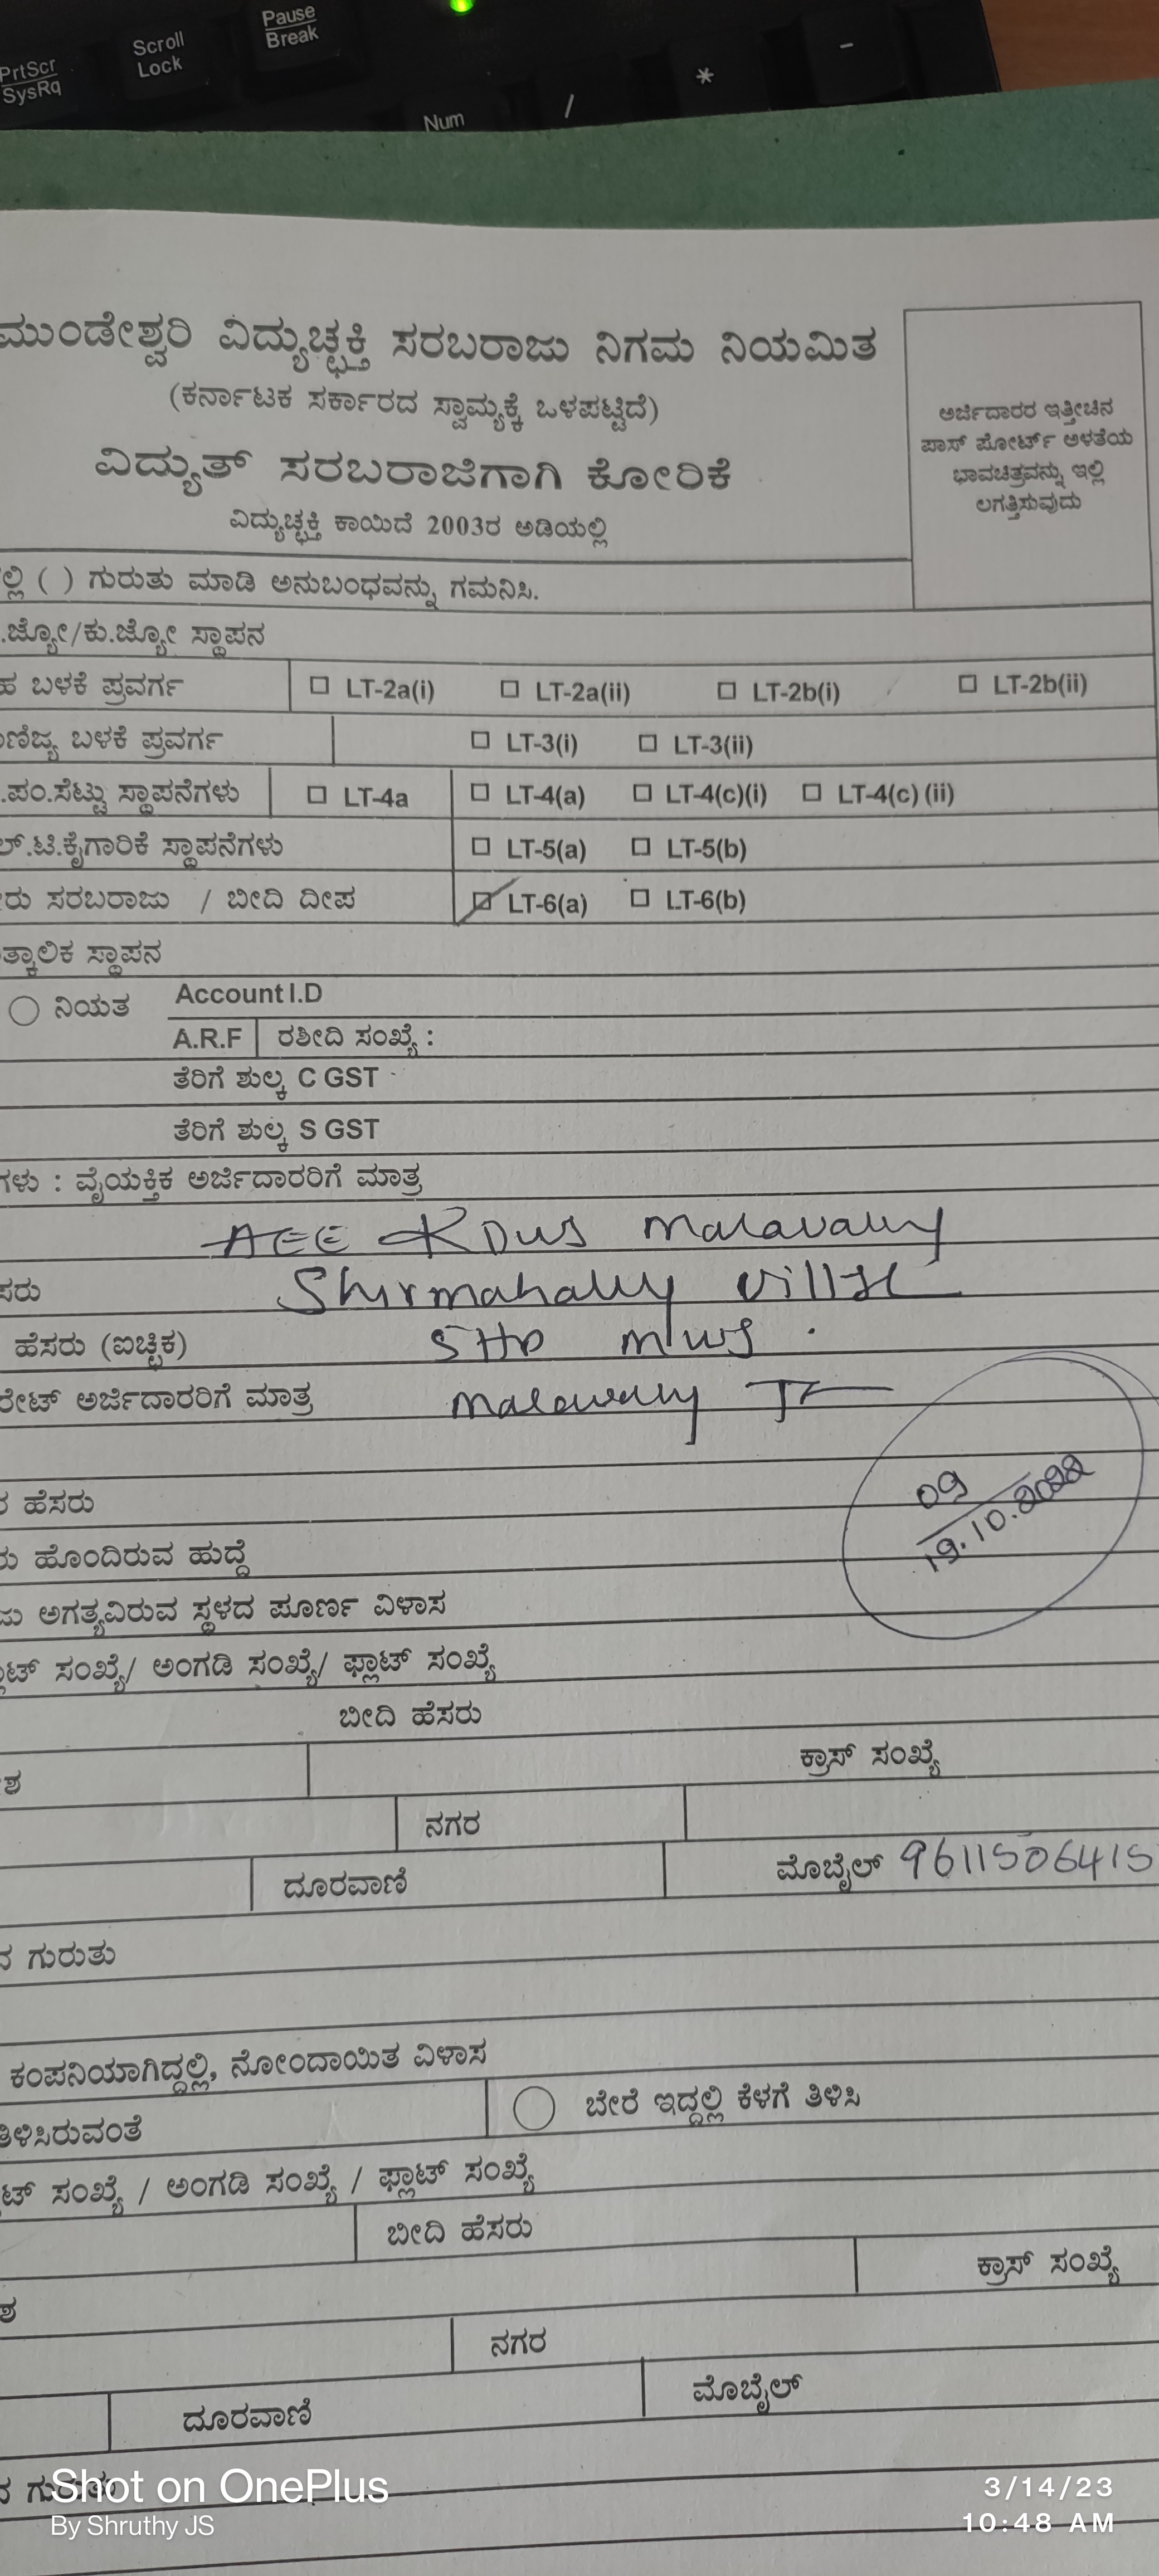 PrtScr
SysRq
Scroll
Lock
Pause
Break
Num
/
*
-
ಮುಂಡೇಶ್ವರಿ ವಿದ್ಯುಚ್ಛಕ್ತಿ ಸರಬರಾಜು ನಿಗಮ ನಿಯಮಿತ
(ಕರ್ನಾಟಕ ಸರ್ಕಾರದ ಸ್ವಾಮ್ಯಕ್ಕೆ ಒಳಪಟ್ಟಿದೆ)
ಅರ್ಜಿದಾರರ ಇತ್ತೀಚಿನ
ಪಾಸ್ ಪೋರ್ಟ್ ಅಳತೆಯ
ಭಾವಚಿತ್ರವನ್ನು ಇಲ್ಲಿ
ಲಗತ್ತಿಸುವುದು
ವಿದ್ಯುತ್ ಸರಬರಾಜಿಗಾಗಿ ಕೋರಿಕೆ
ವಿದ್ಯುಚ್ಛಕ್ತಿ ಕಾಯಿದೆ 2003ರ ಅಡಿಯಲ್ಲಿ
ಲ್ಲಿ ( ) ಗುರುತು ಮಾಡಿ ಅನುಬಂಧವನ್ನು ಗಮನಿಸಿ.
.ಜ್ಯೋ/ಕು.ಜ್ಯೋ ಸ್ಥಾಪನ
ಹ ಬಳಕೆ ಪ್ರವರ್ಗ LT-2a(i) LT-2a(ii) LT-2b(i) LT-2b(ii)
ಣಿಜ್ಯ ಬಳಕೆ ಪ್ರವರ್ಗ LT-3(i) LT-3(ii)
.ಪಂ.ಸೆಟ್ಟು ಸ್ಥಾಪನೆಗಳು LT-4a LT-4(a) LT-4(c)(i) LT-4(c) (ii)
ಲ್.ಟಿ.ಕೈಗಾರಿಕೆ ಸ್ಥಾಪನೆಗಳು LT-5(a) LT-5(b)
ರು ಸರಬರಾಜು / ಬೀದಿ ದೀಪ LT-6(a) LT-6(b)
ತ್ಕಾಲಿಕ ಸ್ಥಾಪನ
ನಿಯತ Account I.D
A.R.F ರಶೀದಿ ಸಂಖ್ಯೆ :
ತೆರಿಗೆ ಶುಲ್ಕ C GST
ತೆರಿಗೆ ಶುಲ್ಕ S GST
ಗಳು : ವೈಯಕ್ತಿಕ ಅರ್ಜಿದಾರರಿಗೆ ಮಾತ್ರ
AEE Malavally
ಸರು
ಹೆಸರು (ಐಚ್ಛಿಕ)
ರೇಟ್ ಅರ್ಜಿದಾರರಿಗೆ ಮಾತ್ರ Malavally
09
19.10.2022
ರ ಹೆಸರು
ರು ಹೊಂದಿರುವ ಹುದ್ದೆ
ಜು ಅಗತ್ಯವಿರುವ ಸ್ಥಳದ ಪೂರ್ಣ ವಿಳಾಸ
ಟ್ ಸಂಖ್ಯೆ/ ಅಂಗಡಿ ಸಂಖ್ಯೆ/ ಫ್ಲಾಟ್ ಸಂಖ್ಯೆ
ಬೀದಿ ಹೆಸರು
ಶ ಕ್ರಾಸ್ ಸಂಖ್ಯೆ
ನಗರ
ದೂರವಾಣಿ ಮೊಬೈಲ್ 9611506415
ನ ಗುರುತು
ಕಂಪನಿಯಾಗಿದ್ದಲ್ಲಿ, ನೋಂದಾಯಿತ ವಿಳಾಸ
ತಿಳಿಸಿರುವಂತೆ ಬೇರೆ ಇದ್ದಲ್ಲಿ ಕೆಳಗೆ ತಿಳಿಸಿ
ಟ್ ಸಂಖ್ಯೆ / ಅಂಗಡಿ ಸಂಖ್ಯೆ / ಫ್ಲಾಟ್ ಸಂಖ್ಯೆ
ಬೀದಿ ಹೆಸರು
ಶ ಕ್ರಾಸ್ ಸಂಖ್ಯೆ
ನಗರ
ದೂರವಾಣಿ ಮೊಬೈಲ್
ನ ಗುರುತು
Shot on OnePlus
By Shruthy JS
3/14/23
10:48 AM